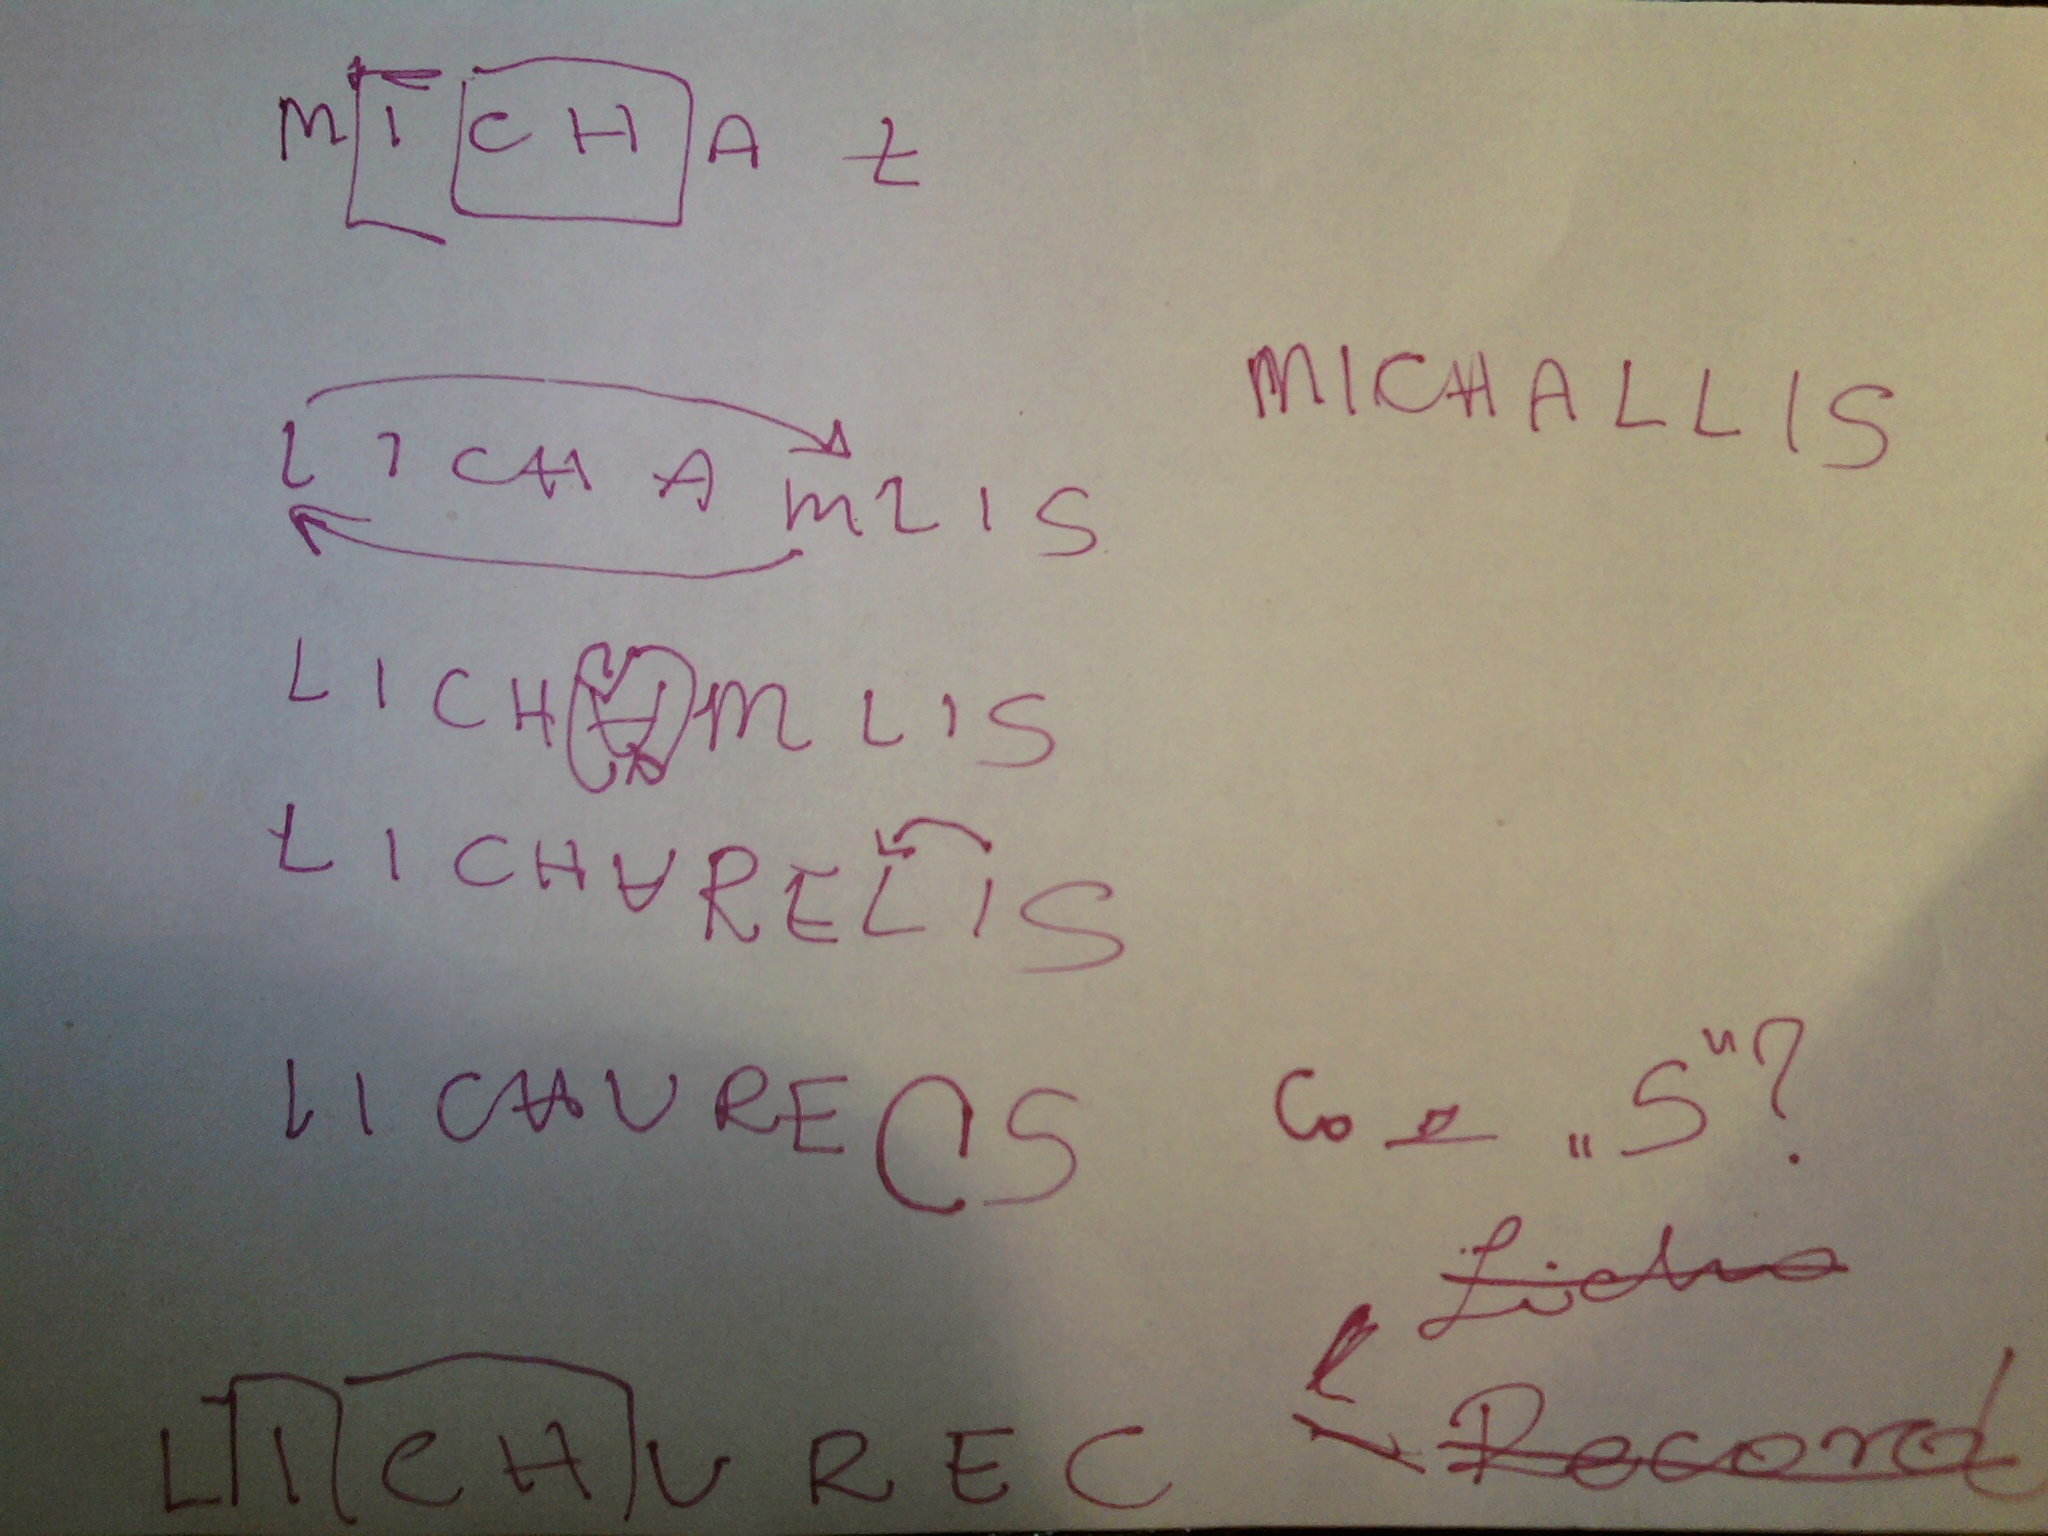 MICHAŁ
MICHALLIS
LICHAMLIS
LICHAMLIS
LICHURELIS
LICHURECS Co z „S"?
Licho
LICHUREC Record